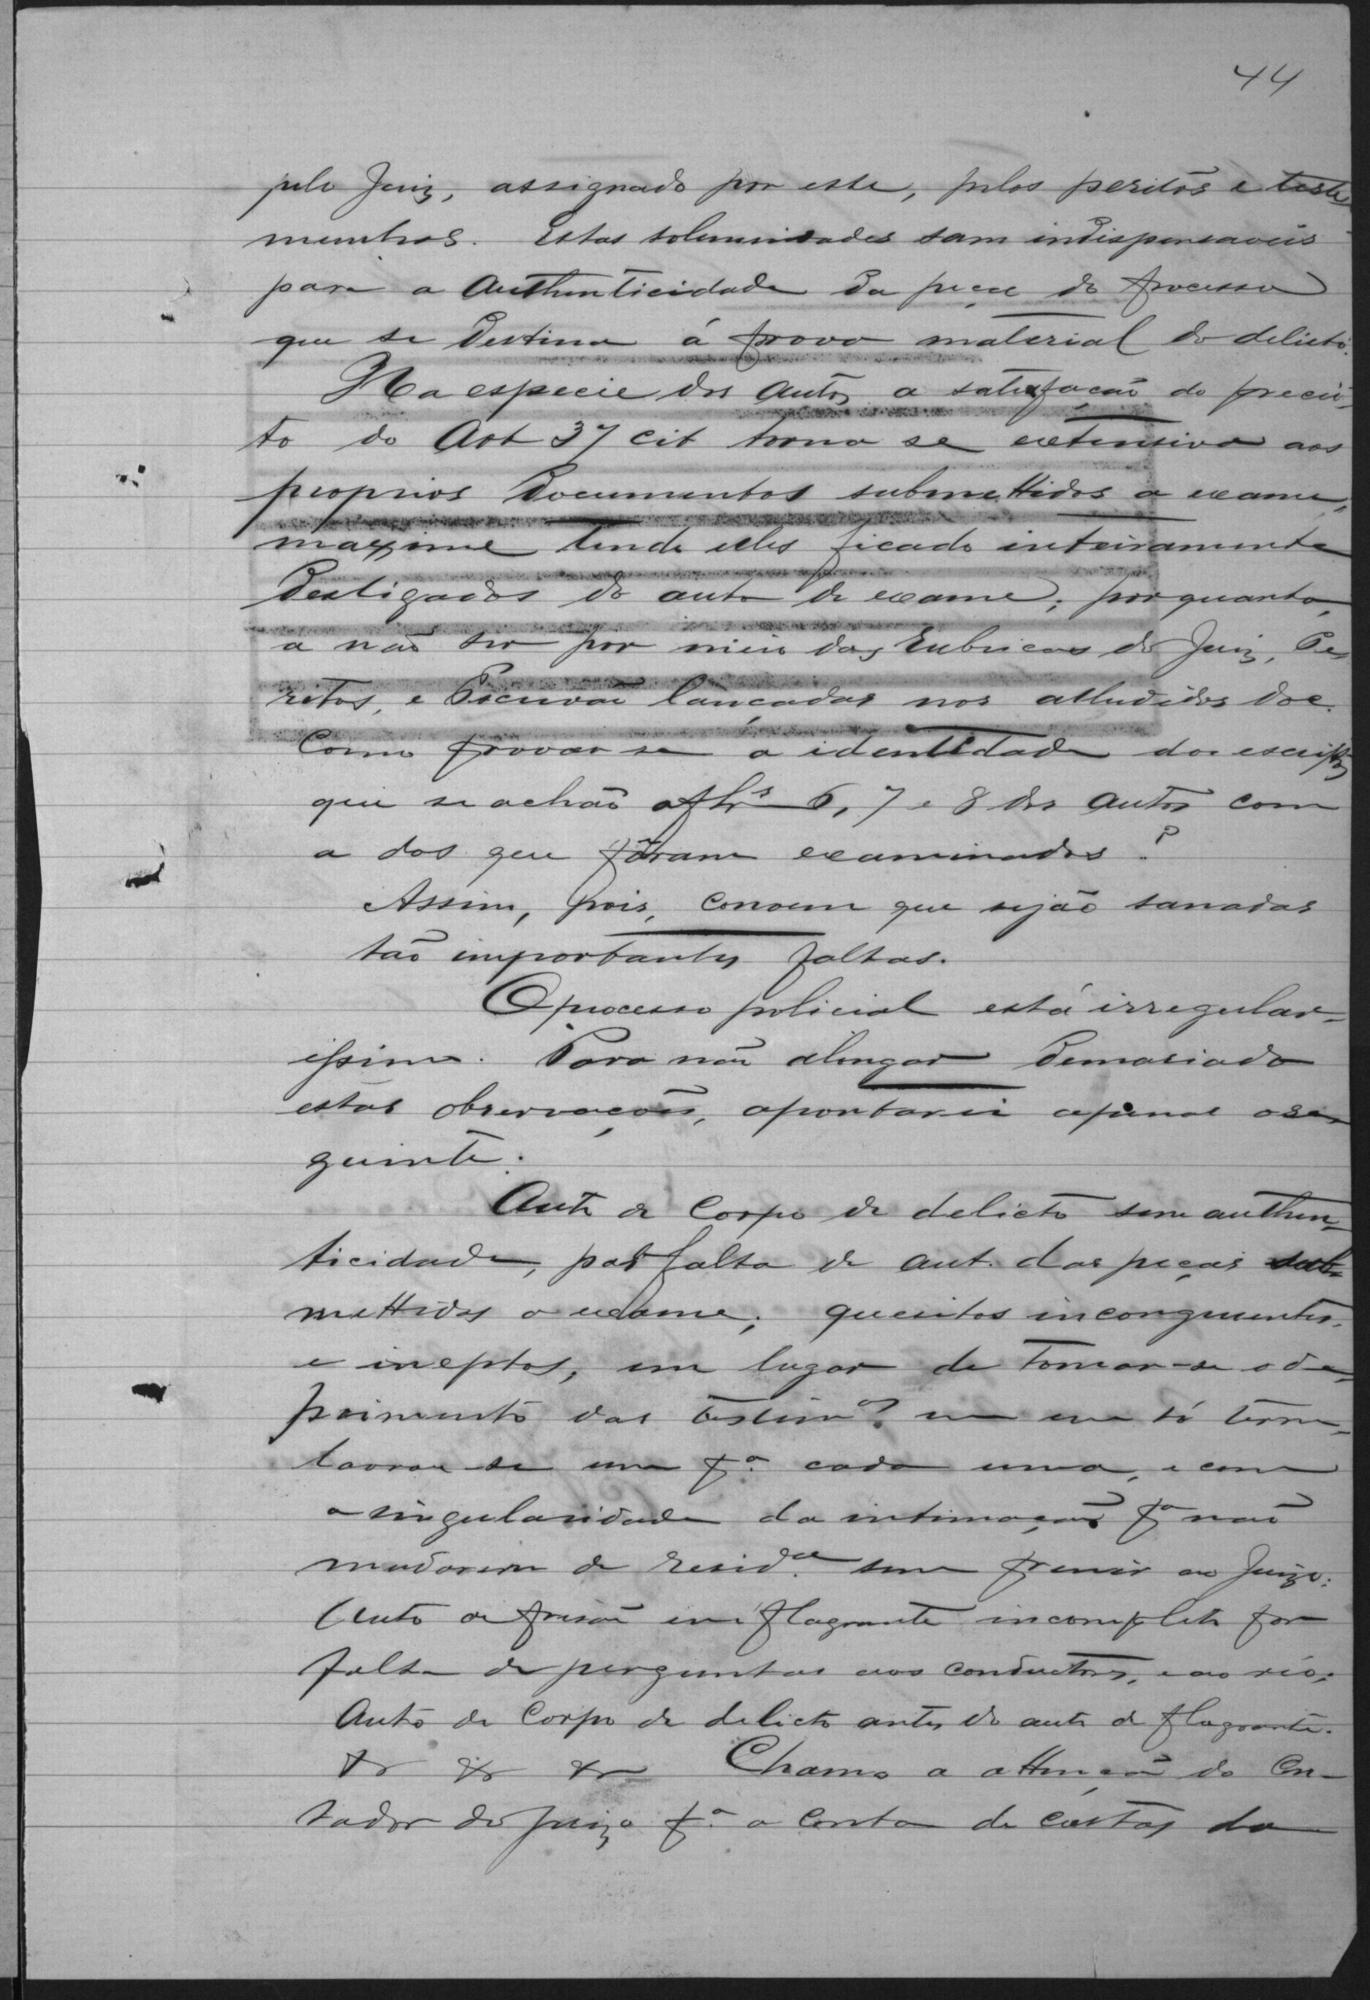 44
pelo Juiz, assignado por este, pelos peritos e teste
munhas. Estas solemnidades sam indispensaveis
para a authenticidade da peça do processo
que se destina á prova material do delicto.
Na especie dos autos a satisfação do precei-
to do Art 37 cit torna se extensiva aos
proprios documentos submettidos a exame,
maxime tendo elles ficado inteiramente
desligados do auto de exame; porquanto,
a não ser por meio das rubricas do Juiz, Pe-
ritos, e Escrivão lançadas nos alludidos doc.
Como provar se a identidade dos escriptos
que se achão a fls 6, 7 e 8 dos autos com
a dos que fôram examinados?
Assim, pois, convem que sejão sanadas
tão importantes faltas.
O processo policial está irregular-
issimo. Para não alongar demasiado
estas observações, apontarei apenas o se-
guinte:
Auto de Corpo de delicto sem authen-
ticidade, por falta de aut. das peças sub-
mettidas a exame; quesitos incongruentes,
e ineptos, em lugar de tomar-se o de-
poimento das testimas em um só termo,
lavrou se um pa cada uma, e com
a singularidade da intimação pa não
mudarem de resida sem previr ao Juizo;
Auto de prisão em flagrante incompleto por
falta de perguntas aos conductores, e ao réo;
Auto de Corpo de delicto antes do auto de flagrante.
&r &r &r Chamo a attenção do Con-
tador do Juizo pa a conta de custas da